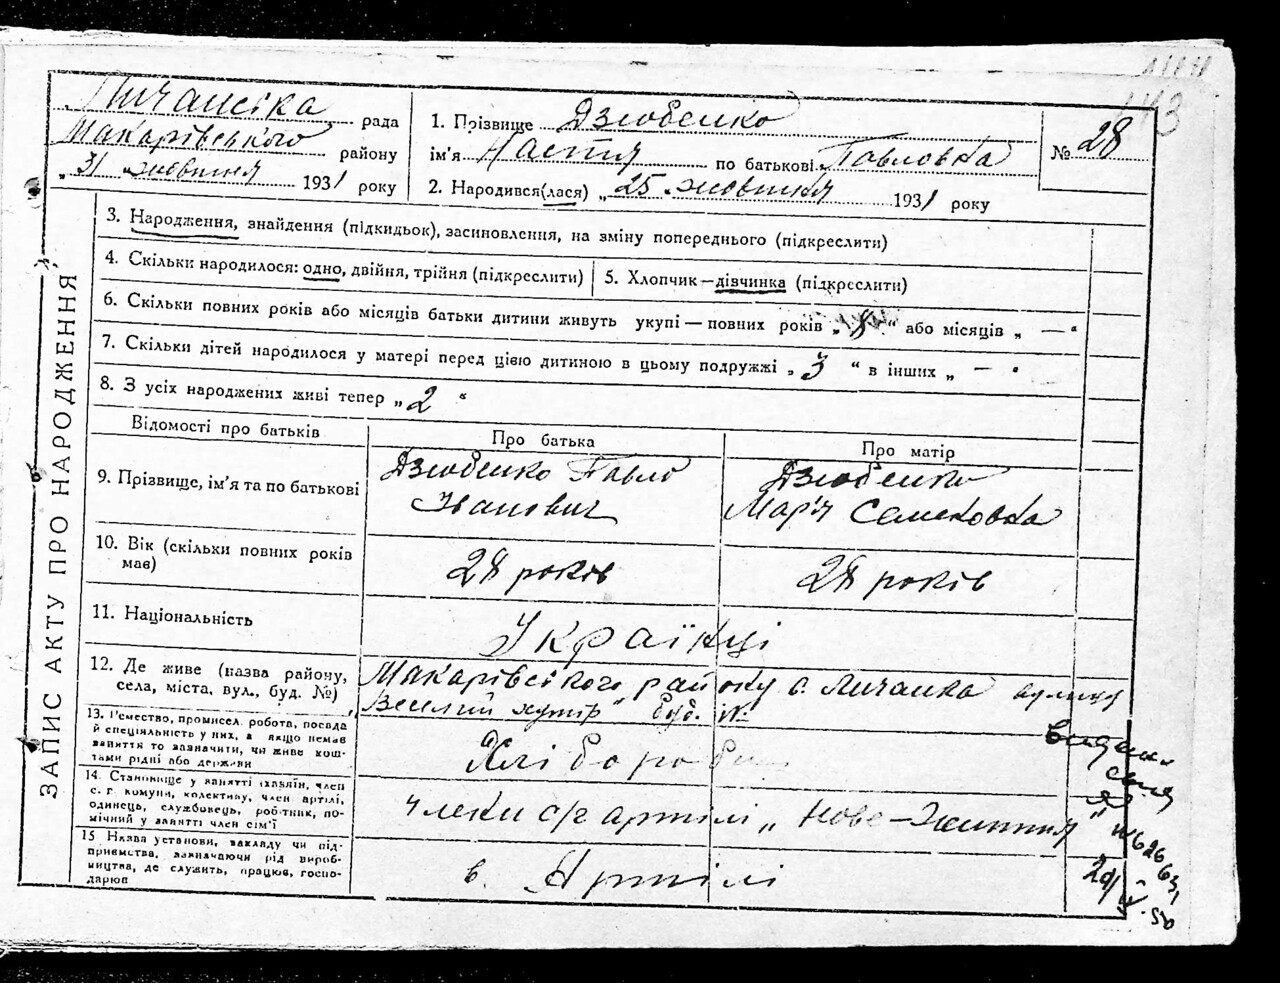 143
Личанська рада
Макарівського району
„31 жовтня 1931 року
1. Прізвище Дзюбенко
ім'я Настя по батькові Павловна
2. Народився(лася) „25 жовтня 1931 року
№ 28
ЗАПИС АКТУ ПРО НАРОДЖЕННЯ
3. Народження, знайдення (підкидьок), засиновлення, на зміну попереднього (підкреслити)
4. Скільки народилося: одно, двійня, трійня (підкреслити)
5. Хлопчик—дівчинка (підкреслити)
6. Скільки повних років або місяців батьки дитини живуть укупі — повних років „ “ або місяців „ — “
7. Скільки дітей народилося у матері перед цією дитиною в цьому подружжі „ 3 “ в інших „ — “
8. З усіх народжених живі тепер „ 2 “
Відомості про батьків
Про батька
Про матір
9. Прізвище, ім'я та по батькові
Дзюбенко Павло
Іванович
Дзюбенко
Мар'я Семеновна
10. Вік (скільки повних років
має)
28 років
28 років
11. Національність
Українці
12. Де живе (назва району,
села, міста, вул., буд. №)
Макарівського району с. Личанка вулиця
„Веселий хутір“ буд. №
13. Ремество, промисел, робота, посада
й спеціяльність у них, а якщо немає
заняття то зазначити, чи живе кош-
тами рідні або держави
Хлібороби
14. Становище у занятті (хазяїн, член
с. г. комуни, колективу, член артілі,
одинець, службовець, робітник, по-
мічний у занятті член сім'ї
члени с/г артілі „Нове-Життя“
15 Назва установи, закладу чи під-
приємства, зазначаючи рід вироб-
ництва, де служить, працює, госпо-
дарює
в. Артілі